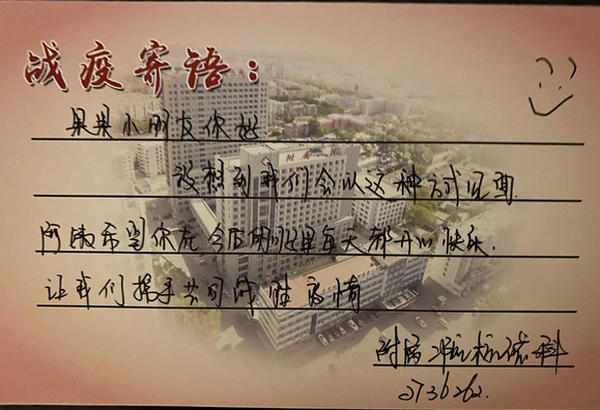 战疫寄语：
果果小朋友你好
没想到我们会以这种方式见面.
阿姨希望你在今后的日子里每天都开心快乐.
让我们携手共同战胜疫情
附属 科